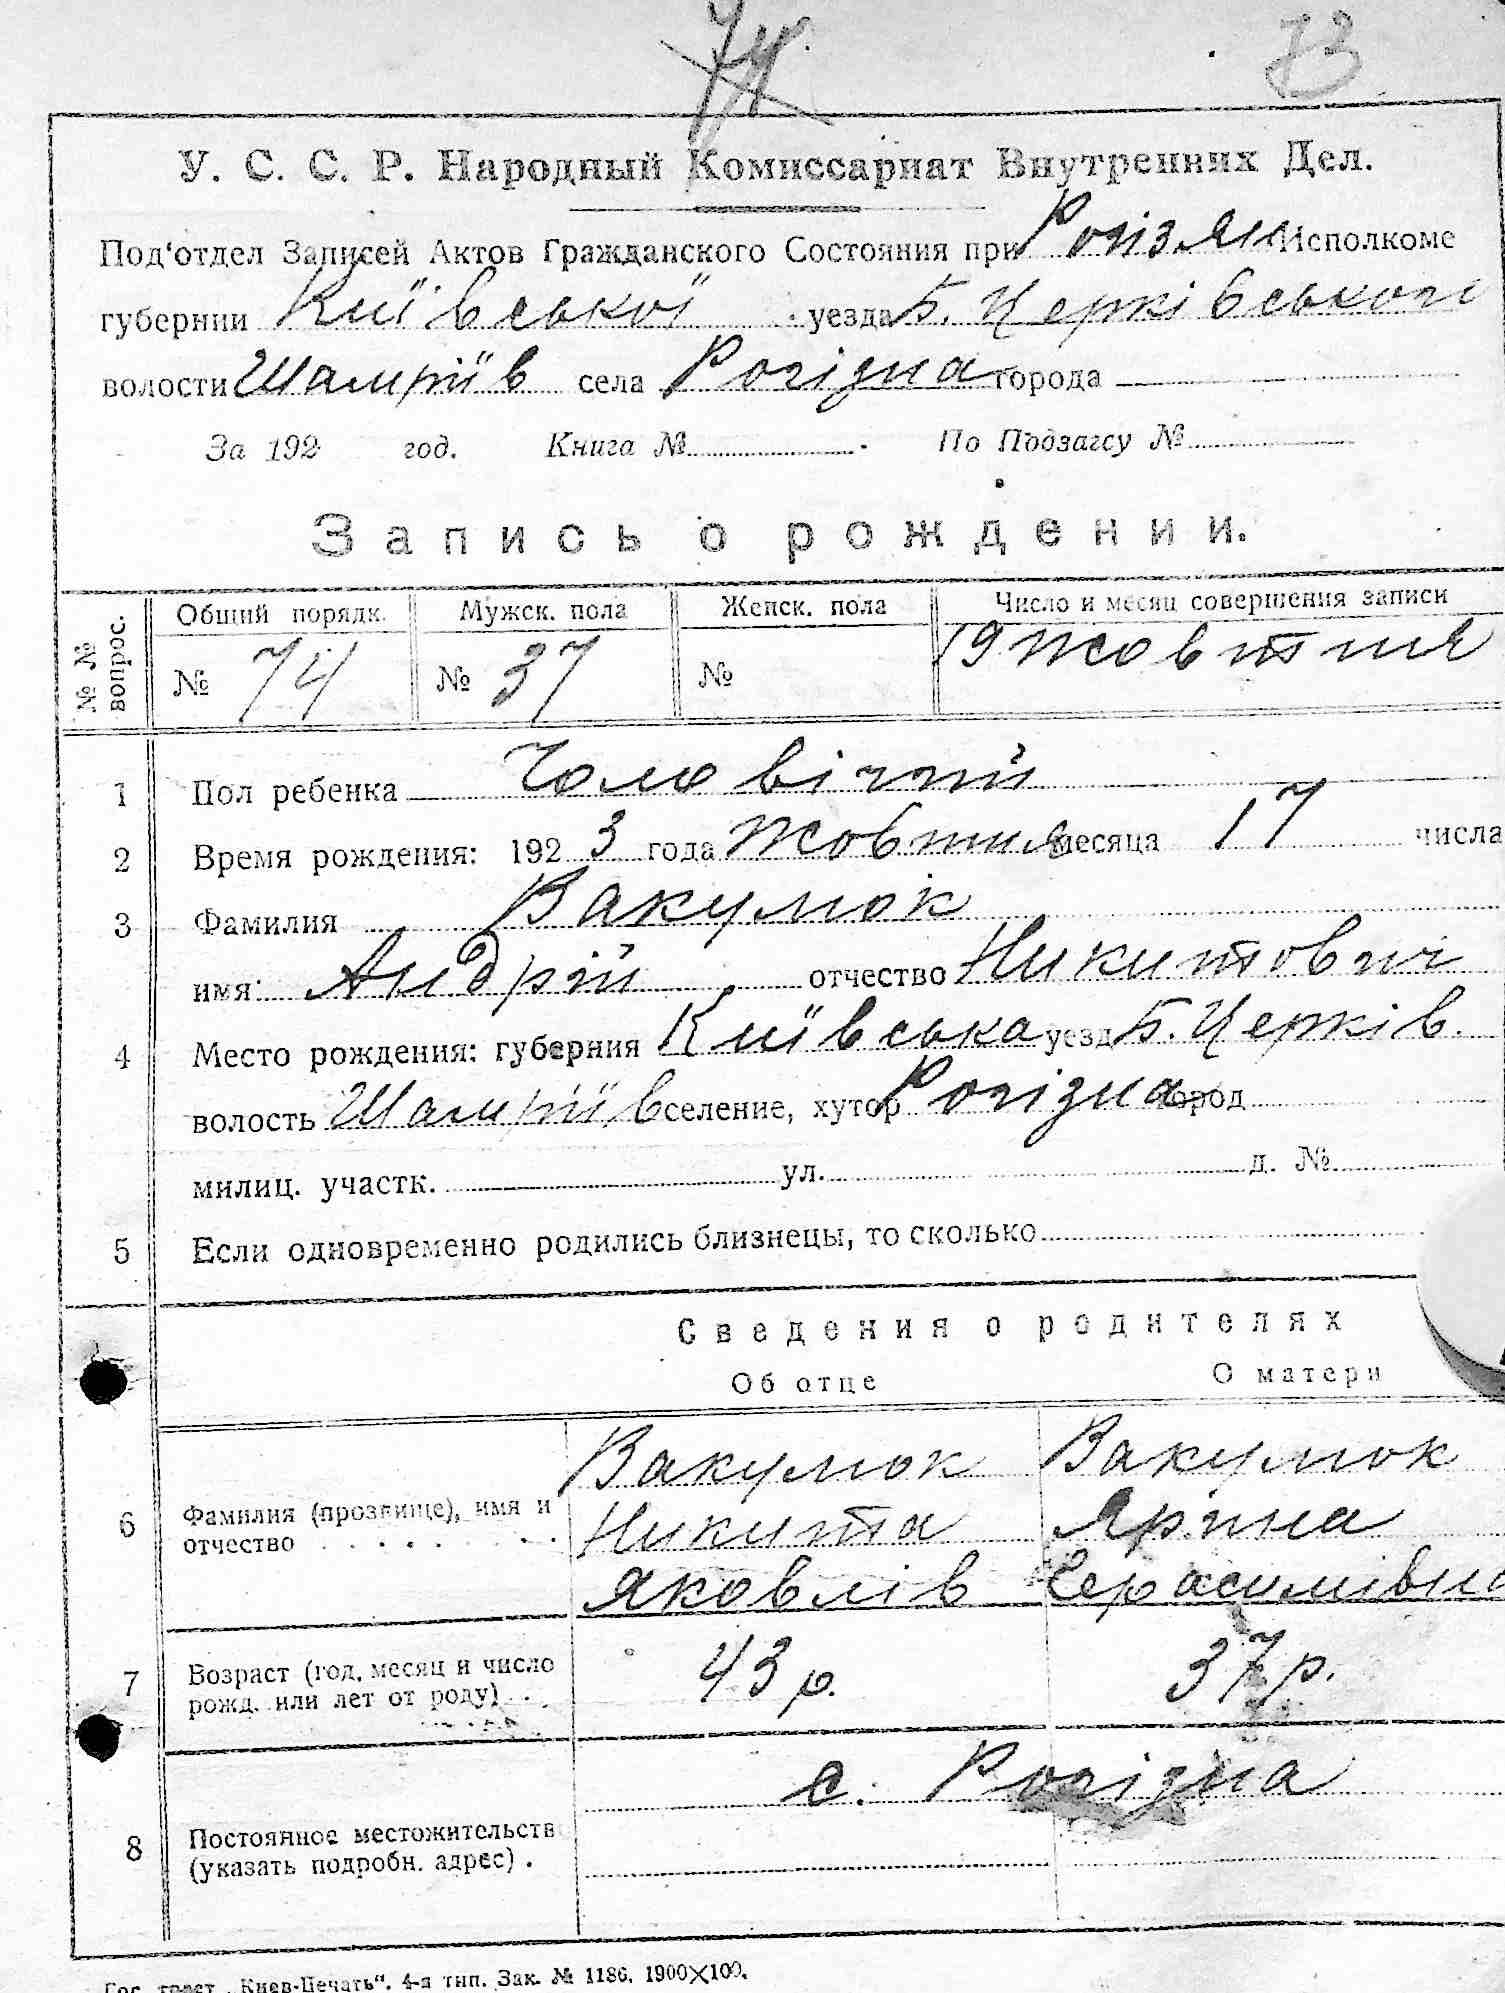 74
73
У. С. С. Р. Народный Комиссариат Внутренних Дел.
Под‘отдел Записей Актов Гражданского Состояния при Рогізян Исполкоме
губернии Київської уезда Б. Церківського
волости Шамріїв села Рогізна города
За 192 год. Книга № По Подзагсу №
Запись о рождении.
№ № вопрос. Общий порядк. Мужск. пола Женск. пола Число и месяц совершения записи
№ 74 № 37 № 19 Жовтня
1 Пол ребенка Чоловічий
2 Время рождения: 192 3 года Жовтня месяца 17 числа
3 Фамилия Вакулюк
имя: Андрій отчество Никитович
4 Место рождения: губерния Київська уезд Б. Церків.
волость Шамріїв селение, хутор Рогізна город
милиц. участк. ул. д. №
5 Если одновременно родились близнецы, то сколько
Сведения о родителях
Об отце О матери
Вакулюк Вакулюк
6 Фамилия (прозвище), имя и Никита Ярина
отчество Яковлів Герасимівна
7 Возраст (год, месяц и число 43 р. 37 р.
рожд. или лет от роду)
с. Рогізна
8 Постоянное местожительств
(указать подробн. адрес) .
Гос. трест „Киев-Печать“. 4-я тип. Зак. № 1186. 1900×100.